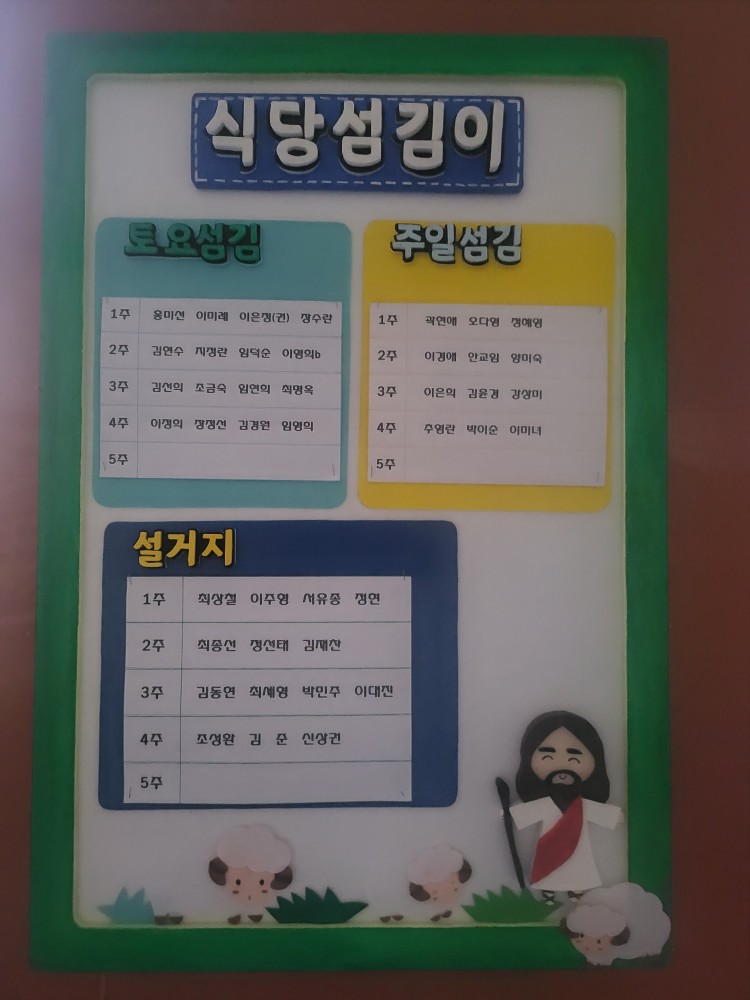 식당섬김이
토요섬김
1주 홍미선 이미례 이은정(권) 장수란
2주 김연수 지정란 임덕순 이영희b
3주 김선희 조금숙 임연희 최명옥
4주 이정희 장정선 김경원 임영희
5주
주일섬김
1주 곽연애 오다영 정혜영
2주 이경애 안교임 양미숙
3주 이은희 김윤경 강상미
4주 주영란 박이순 이미녀
5주
설거지
1주 최상철 이주형 서유종 정현
2주 최종선 정선태 김재찬
3주 김동현 최세형 박민주 이대진
4주 조성환 김 준 신상권
5주